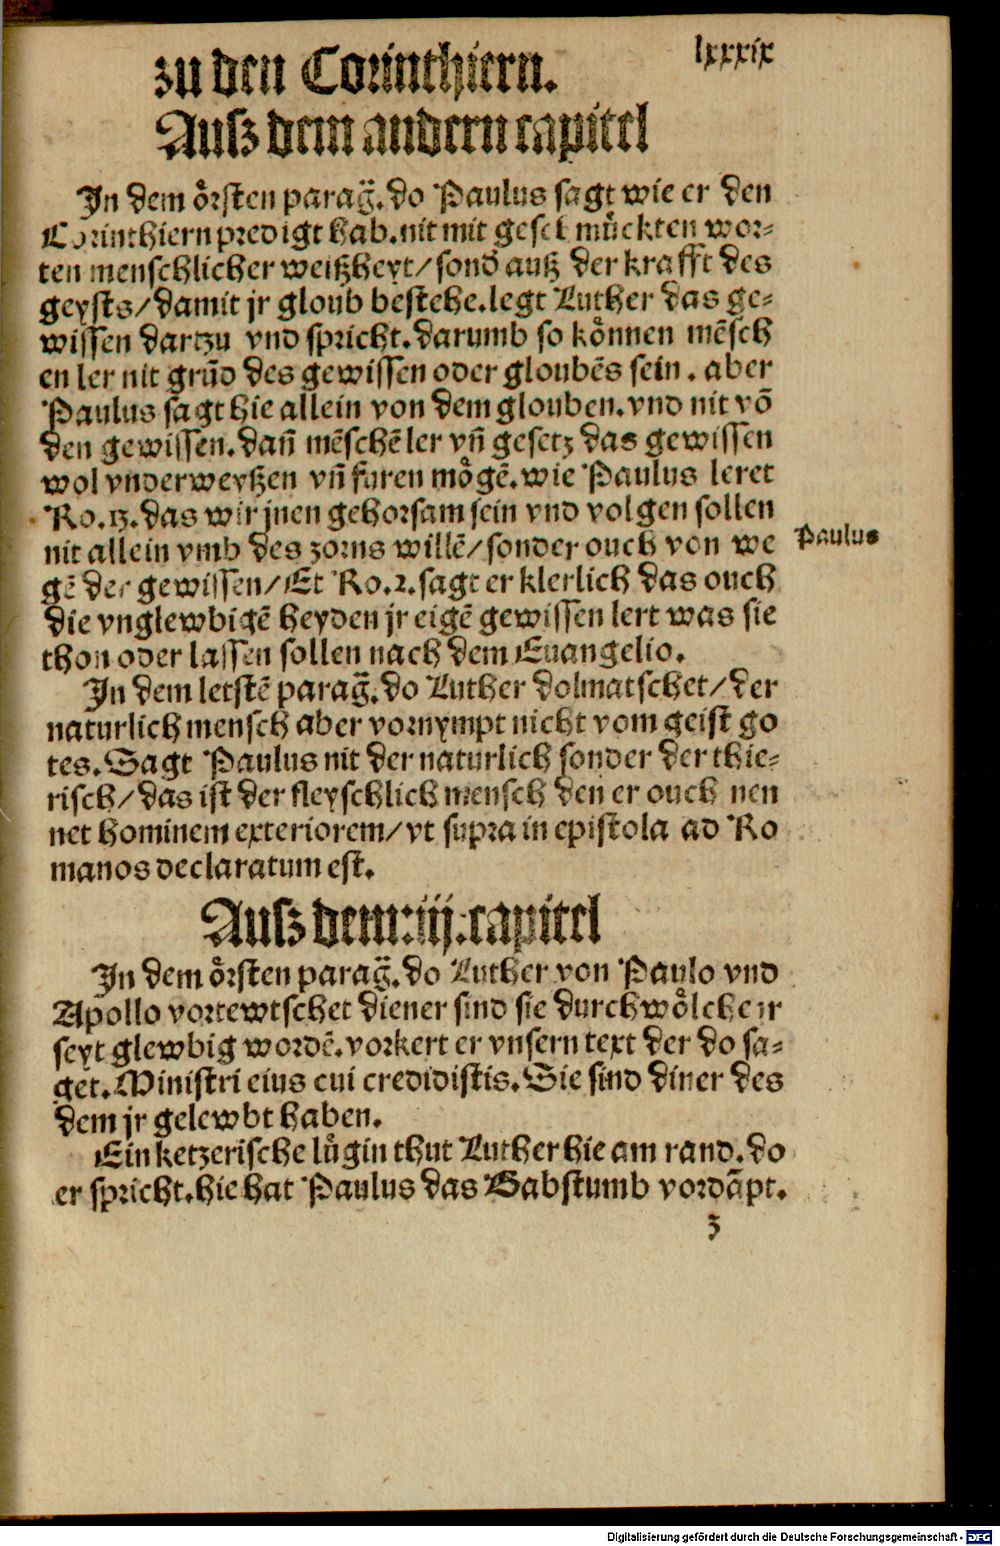 zu den Corinthiern.
lxxxix
Ausz dem andern capitel
In dem oͤrsten parag̃. do Paulus sagt wie er den
Corinthiern predigt hab. nit mit geschmuͤckten wor⸗
ten menschlicher weißheyt/ sond̕ auß der krafft des
geysts/ damit jr gloub bestehe. legt Luther das ge⸗
wissen dartzu vnd spricht. darumb so koͤnnen mẽsch
en ler nit grũd des gewissen oder gloubẽs sein. aber
Paulus sagt hie allein von dem glouben. vnd nit võ
den gewissen. dañ mẽschẽ ler vñ gesetz das gewissen
wol vnderweyßen vñ furen moͤgẽ. wie Paulus leret
Ro. 13. das wir jnen gehorsam sein vnd volgen sollen
nit allein vmb des zorns willẽ/ sonder ouch von we
gẽ der gewissen/ Et Ro. 2. sagt er klerlich das ouch
die vnglewbigẽ heyden jr eigẽ gewissen lert was sie
thon oder lassen sollen nach dem Euangelio.
Paulus
In dem letstẽ parag̃. do Luther dolmatschet/ der
naturlich mensch aber vornympt nicht vom geist go
tes. Sagt Paulus nit der naturlich sonder der thie⸗
risch/ das ist der fleyschlich mensch den er ouch nen
net hominem exteriorem/ vt supra in epistola ad Ro
manos declaratum est.
Ausz dem. iij. capitel
In dem oͤrsten parag̃. do Luther von Paulo vnd
Apollo vortewtschet diener sind sie durch woͤlche jr
seyt glewbig wordẽ. vorkert er vnsern text der do sa⸗
get. Ministri eius cui credidistis. Sie sind diner des
dem jr gelewbt haben.
Ein ketzerische luͤgin thut Luther hie am rand. do
er spricht. hie hat Paulus das Babstumb vordãpt.
z
Digitalisierung gefördert durch die Deutsche Forschungsgemeinschaft - DFG